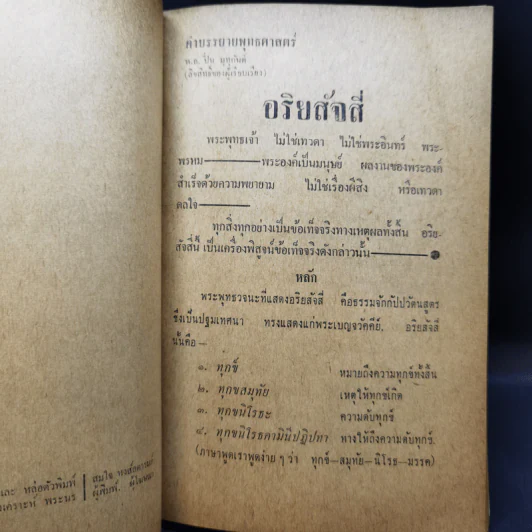 คำบรรยายพุทธศาสตร์
พ.อ. ปิ่น มุทุกันต์
อริยสัจสี่
พระพุทธเจ้า ไม่ใช่เทวดา ไม่ใช่พระอินทร์ พระ-
พรหม———พระองค์เป็นมนุษย์ ผลงานของพระองค์
สำเร็จด้วยความพยายาม ไม่ใช่เรื่องผีสิง หรือเทวดา
ดลใจ———
ทุกสิ่งทุกอย่างเป็นข้อเท็จจริงทางเหตุผลทั้งสิ้น อริย-
สัจสี่นี้ เป็นเครื่องพิสูจน์ข้อเท็จจริงดังกล่าวนั้น———
หลัก
พระพุทธวจนะที่แสดงอริยสัจสี่ คือธรรมจักกัปปวัตนสูตร
ซึ่งเป็นปฐมเทศนา ทรงแสดงแก่พระเบญจวัคคีย์. อริยสัจสี่
นั้นคือ —
๑. ทุกข์ หมายถึงความทุกข์ทั้งสิ้น
๒. ทุกขสมุทัย เหตุให้ทุกข์เกิด
๓. ทุกขนิโรธะ ความดับทุกข์
๔. ทุกขนิโรธคามินีปฏิปทา ทางให้ถึงความดับทุกข์.
(ภาษาพูดเราพูดง่าย ๆ ว่า ทุกข์—สมุทัย—นิโรธ—มรรค)
และ หล่อตัวพิมพ์
เคราะห์ พระนร